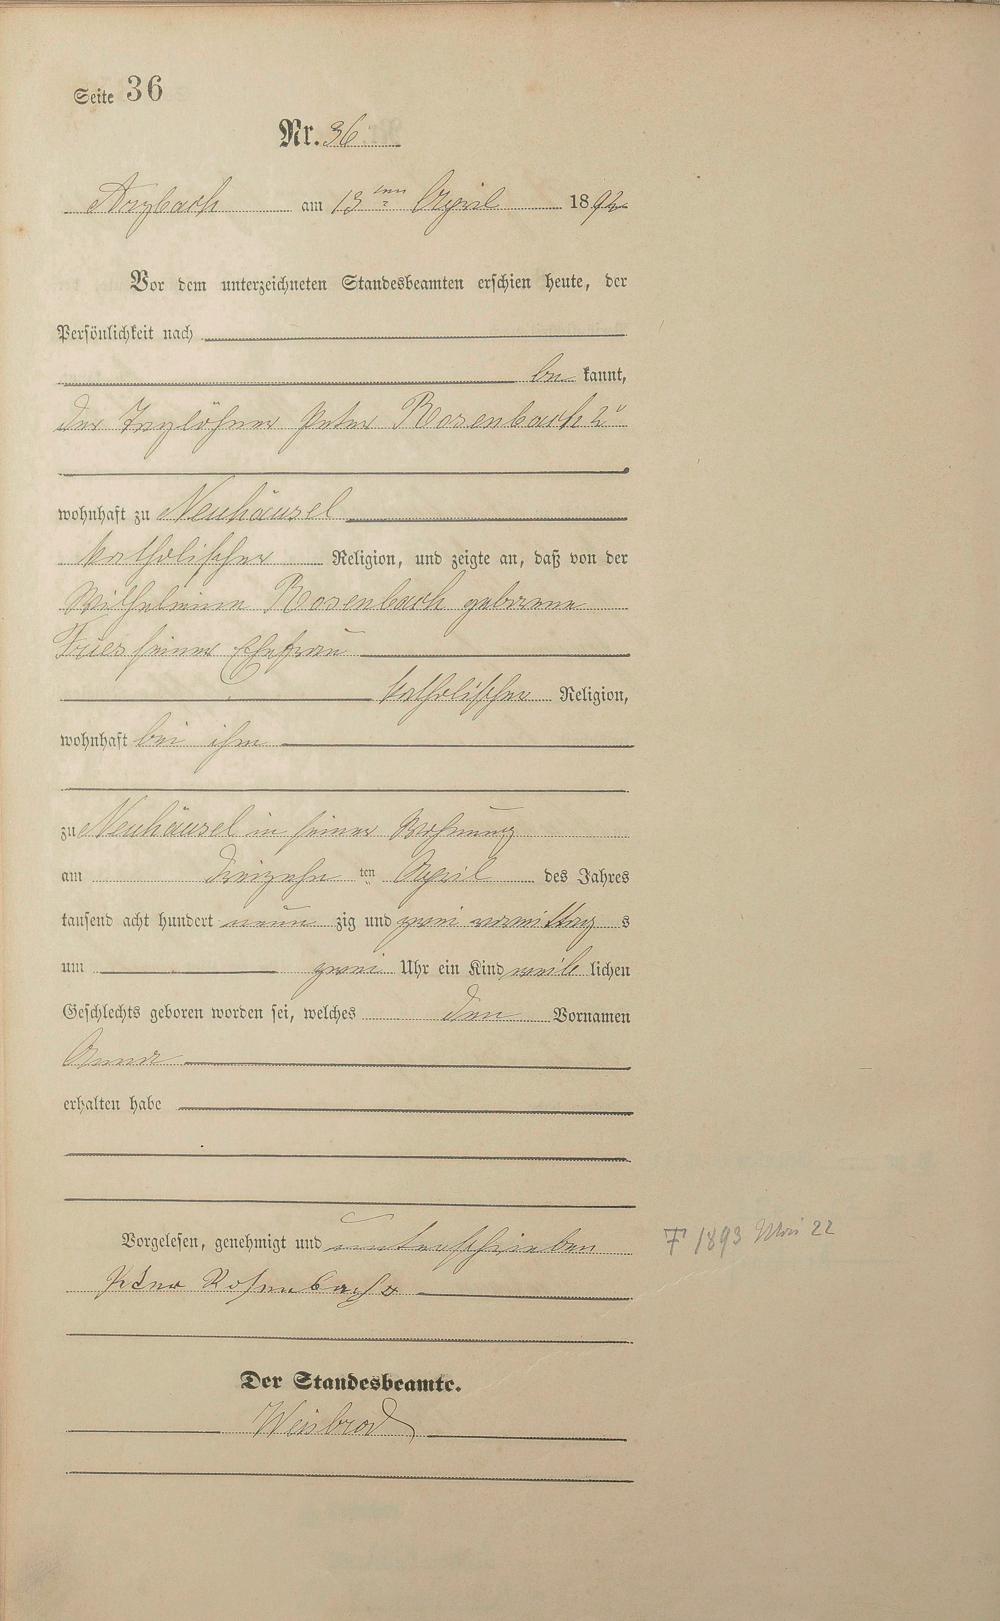 Seite 36
Nr. 36
Arzbach am 13ten April 1892
Vor dem unterzeichneten Standesbeamten erschien heute, der
Persönlichkeit nach
be kannt,
der Taglöhner Peter Rosenbach 2r
wohnhaft zu Neuhäusel
katholischer Religion, und zeigte an, daß von der
Wilhelmine Rosenbach geborene
Fries seiner Ehefrau
katholischer Religion,
wohnhaft bei ihm
zu Neuhäusel in seiner Wohnung
am dreizehn ten April des Jahres
tausend acht hundert neun zig und zwei vormittag s
um zwei Uhr ein Kind weib lichen
Geschlechts geboren worden sei, welches den Vornamen
Anna
erhalten habe
Vorgelesen, genehmigt und unterschrieben
Peter Rosenbach 2
Der Standesbeamte.
Weisbrod
1893 Mai 22